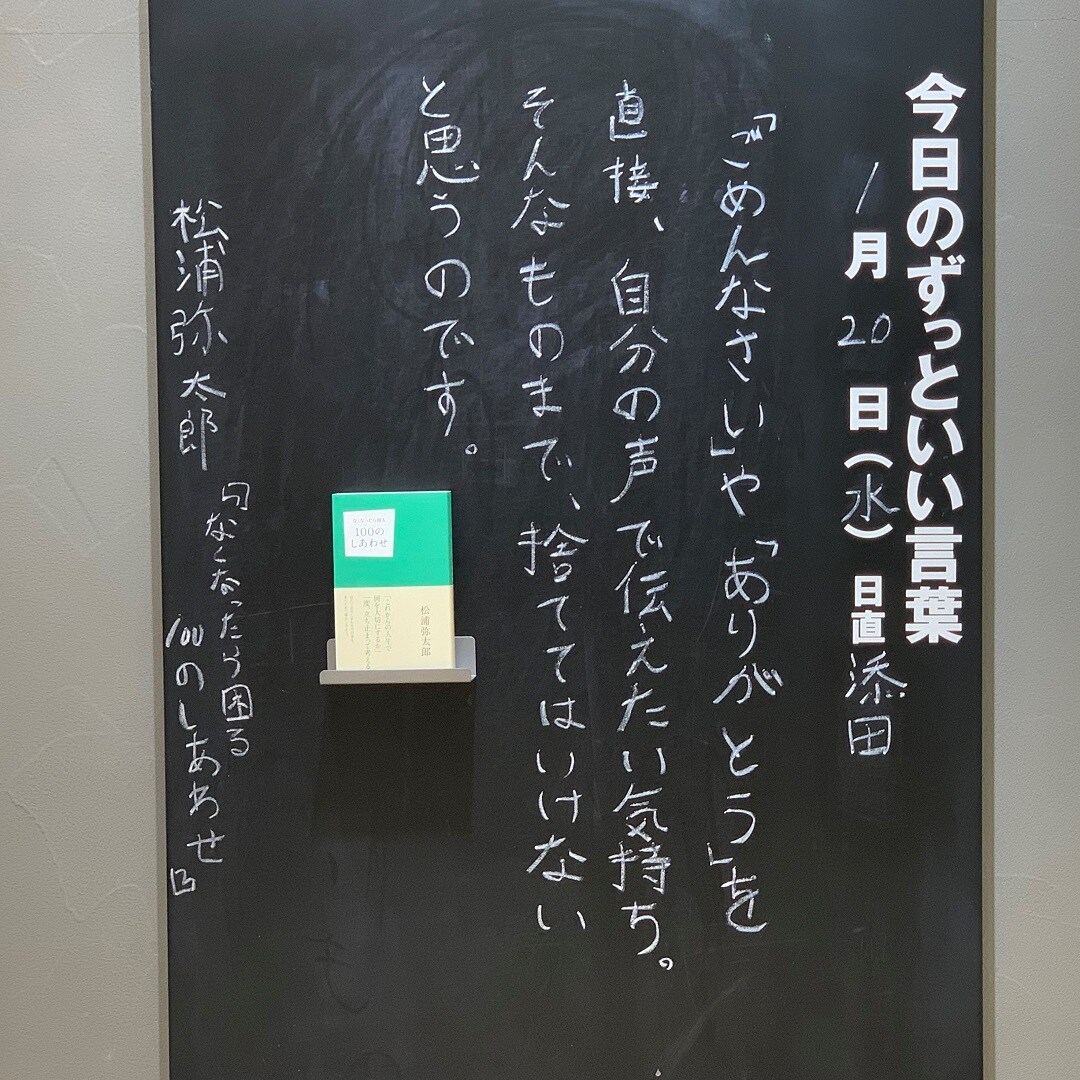 今日のずっといい言葉
1月20日(水) 日直 添田
「ごめんなさい」や「ありがとう」を
直接、自分の声で伝えたい気持ち。
そんなものまで、捨ててはいけない
と思うのです。
なくなったら困る
100の
しあわせ
松浦弥太郎
「これからの人生で
何を大切にするか」
一度、立ち止まって考える
松浦弥太郎
『なくなったら困る
100のしあわせ』